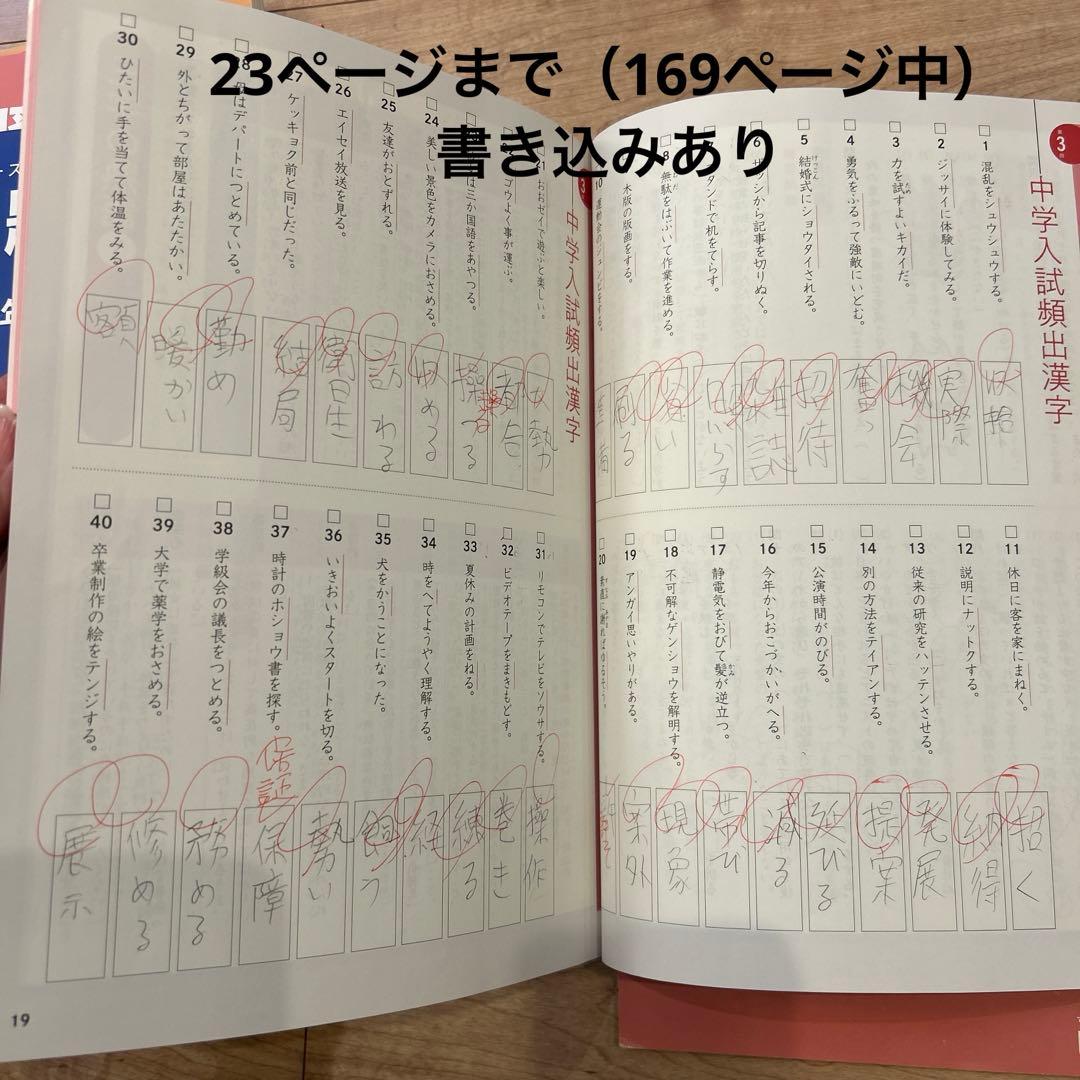 23ページまで（169ページ中）
書き込みあり
中学入試頻出漢字
1 混乱をシュウシュウする。
2 ジッサイに体験してみる。
3 力を試すよいキカイだ。
4 勇気をふるって強敵にいどむ。
5 結婚式にショウタイされる。
6 ザッシから記事を切りぬく。
タンドで机をてらす。
8 無駄をはぶいて作業を進める。
木版の版画をする。
10 運動会のジュンビをする。
収拾
実際
機会
奮っ
招待
雑誌
照らす
省い
刷る
準備
11 休日に客を家にまねく。
12 説明にナットクする。
13 従来の研究をハッテンさせる。
14 別の方法をテイアンする。
15 公演時間がのびる。
16 今年からおこづかいがへる。
17 静電気をおびて髪が逆立つ。
18 不可解なゲンショウを解明する。
19 アンガイ思いやりがある。
20
招く
納得
発展
提案
延びる
減る
帯び
現象
案外
3
中学入試頻出漢字
21 おおぜいで遊ぶと楽しい。
ゴウよく事が運ぶ。
は三か国語をあやつる。
24 美しい景色をカメラにおさめる。
25 友達がおとずれる。
26 エイセイ放送を見る。
27 ケッキョク前と同じだった。
28 母はデパートにつとめている。
29 外とちがって部屋はあたたかい。
30 ひたいに手を当てて体温をみる。
大勢
都合
操つる
収める
訪れる
衛星
結局
勤め
暖かい
額
31 リモコンでテレビをソウサする。
32 ビデオテープをまきもどす。
33 夏休みの計画をねる。
34 時をへてようやく理解する。
35 犬をかうことになった。
36 いきおいよくスタートを切る。
37 時計のホショウ書を探す。
38 学級会の議長をつとめる。
39 大学で薬学をおさめる。
40 卒業制作の絵をテンジする。
操作
巻き
練る
経
飼う
勢い
保障
保証
務める
修める
展示
19